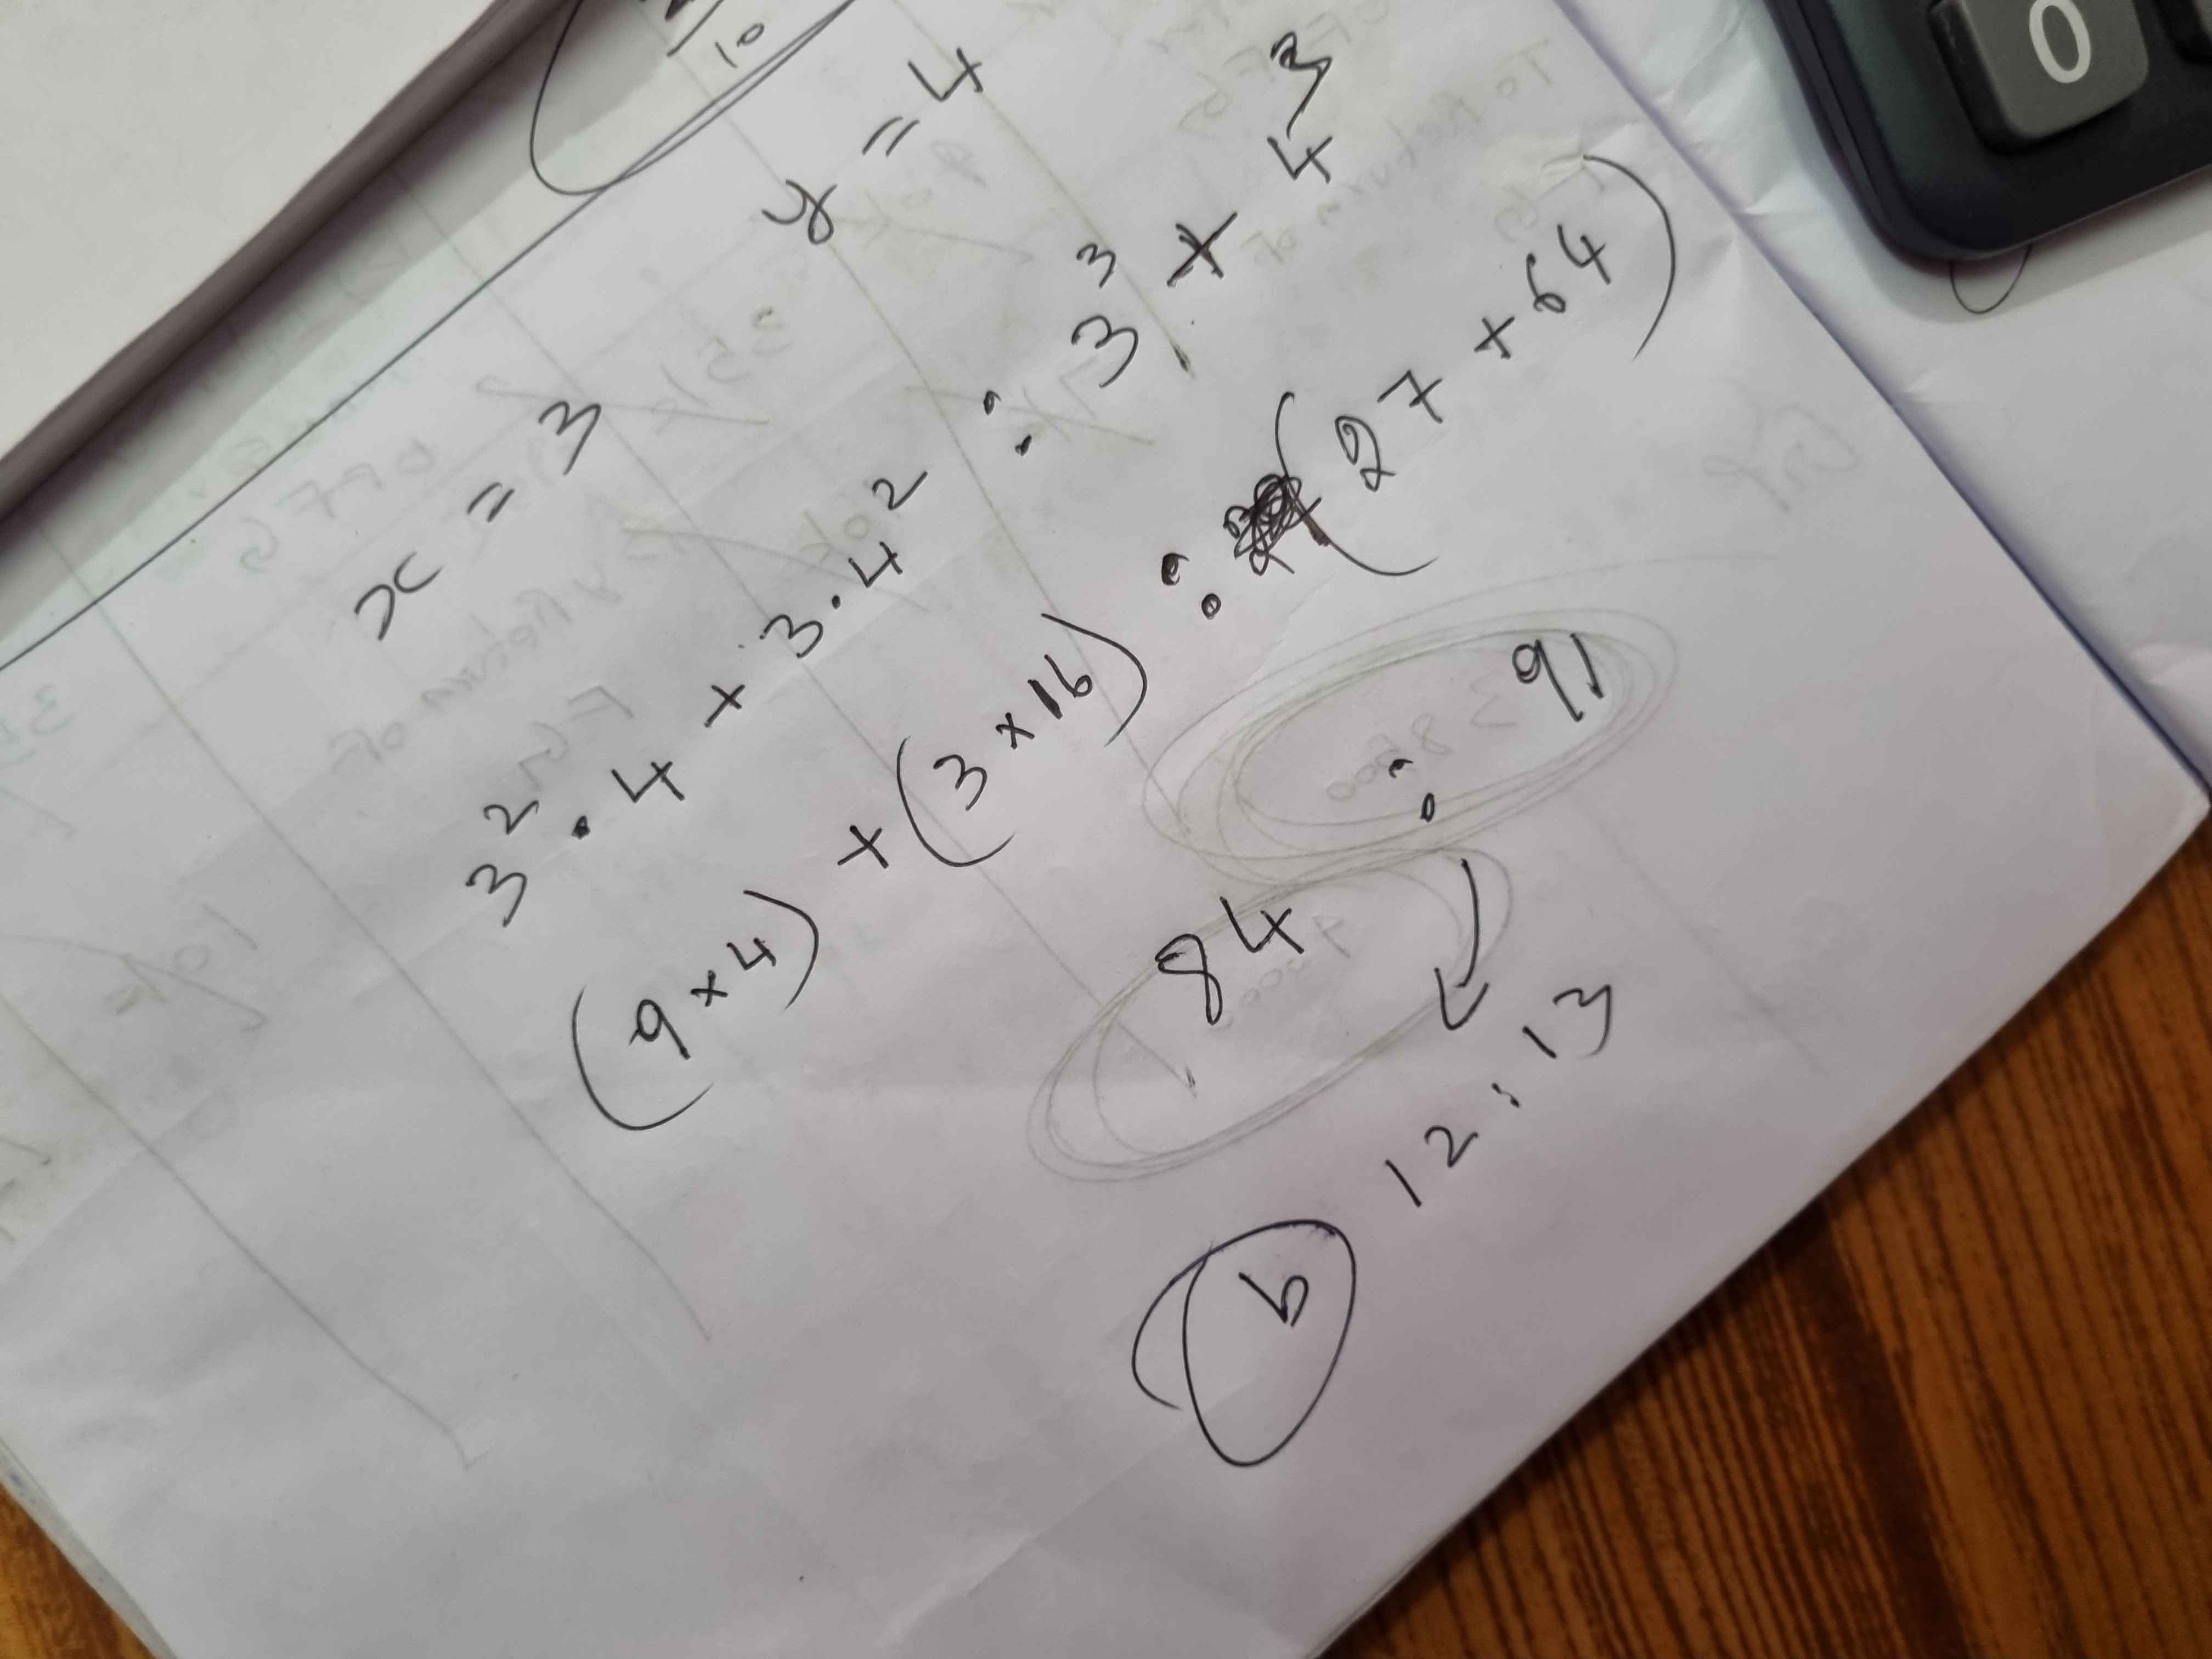 10
0
x = 3 y = 4
3² . 4 + 3 . 4² : 3³ + 4³
(9 × 4) + (3 × 16) : (27 + 64)
84 : 91
12 : 13
b